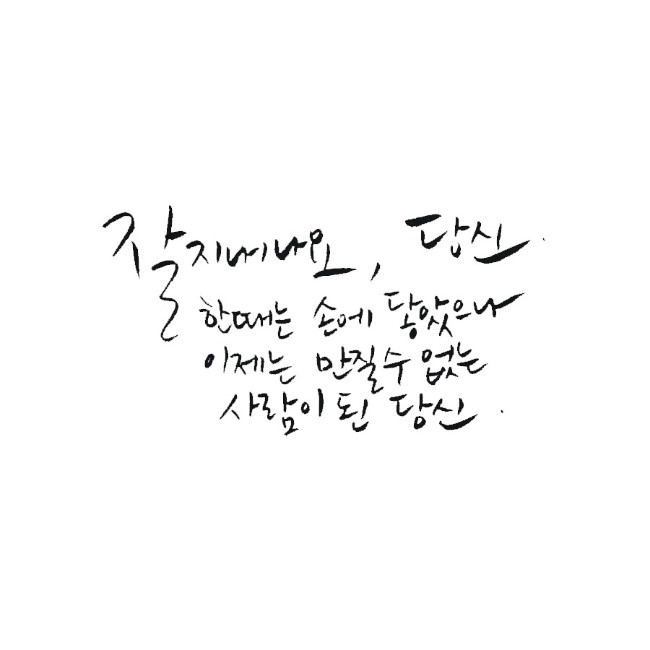 잘 지내나요, 당신.
한때는 손에 닿았으나
이제는 만질 수 없는
사람이 된 당신.